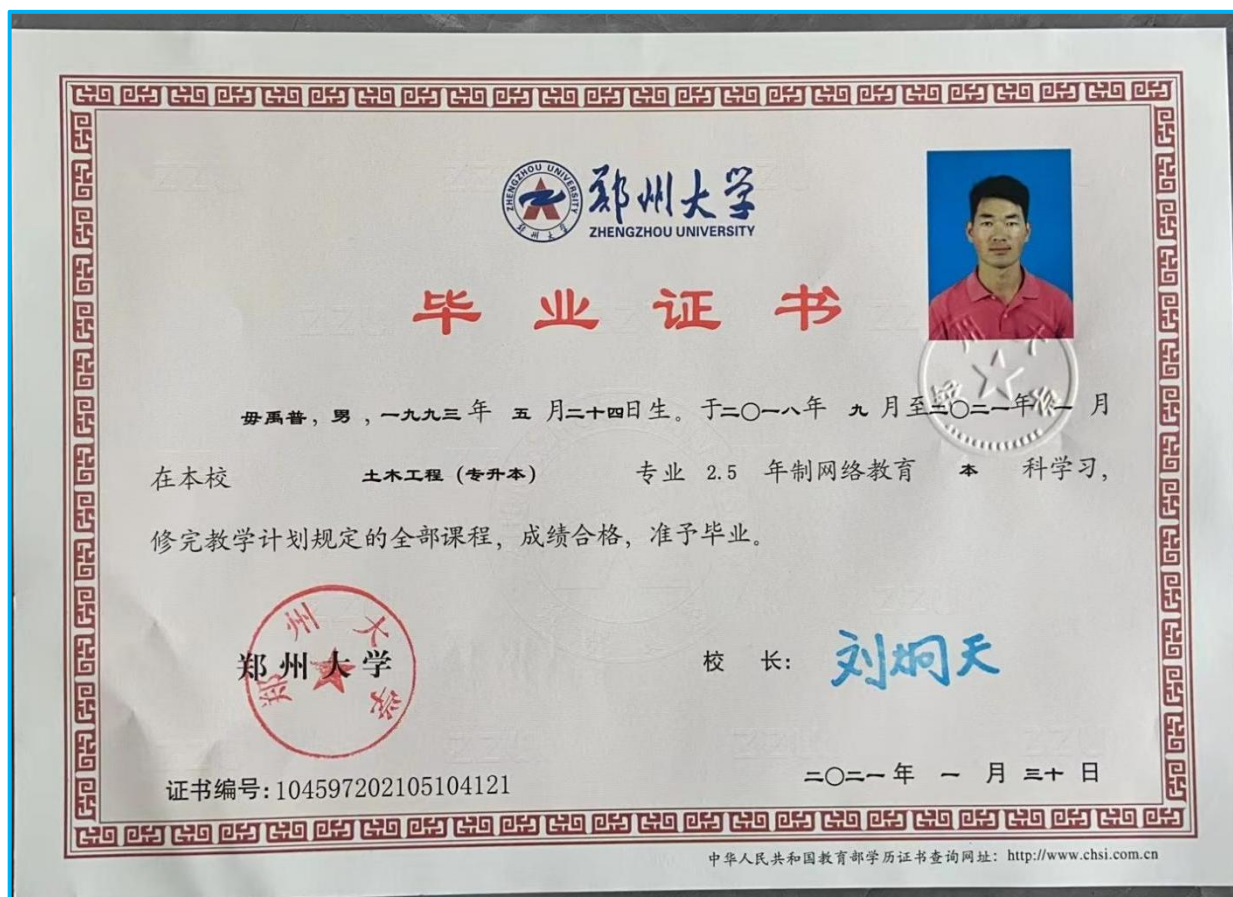 ZHENGZHOU UNIVERSITY
郑州大学
郑州大学
ZHENGZHOU UNIVERSITY
毕业证书
毋禹普，男，一九九三年 五 月二十四日生。于二〇一八年 九 月至二〇二一年 一 月
在本校 土木工程（专升本） 专业 2.5 年制网络教育 本 科学习，
修完教学计划规定的全部课程，成绩合格，准予毕业。
郑州大学
郑州大学
校 长：刘炯天
二〇二一年 一 月 三十 日
证书编号：104597202105104121
中华人民共和国教育部学历证书查询网址：http://www.chsi.com.cn